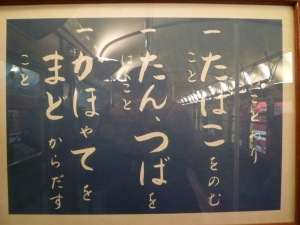 一たばこをのむ
こと
一たん、つばを
はくこと
一かほやてを
まどからだす
こと